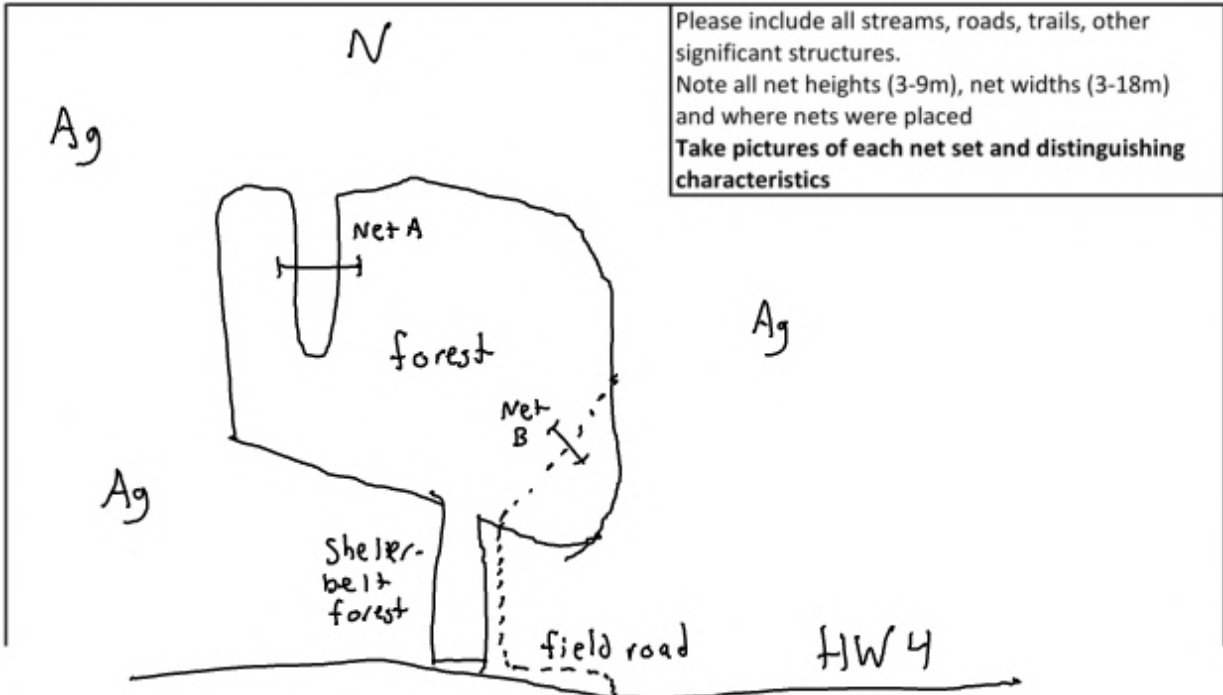 N
Please include all streams, roads, trails, other
significant structures.
Note all net heights (3-9m), net widths (3-18m)
and where nets were placed
Take pictures of each net set and distinguishing
characteristics
Ag
Net A
forest
Ag
Net
B
Ag
Shelter-
belt
forest
field road
HW 4